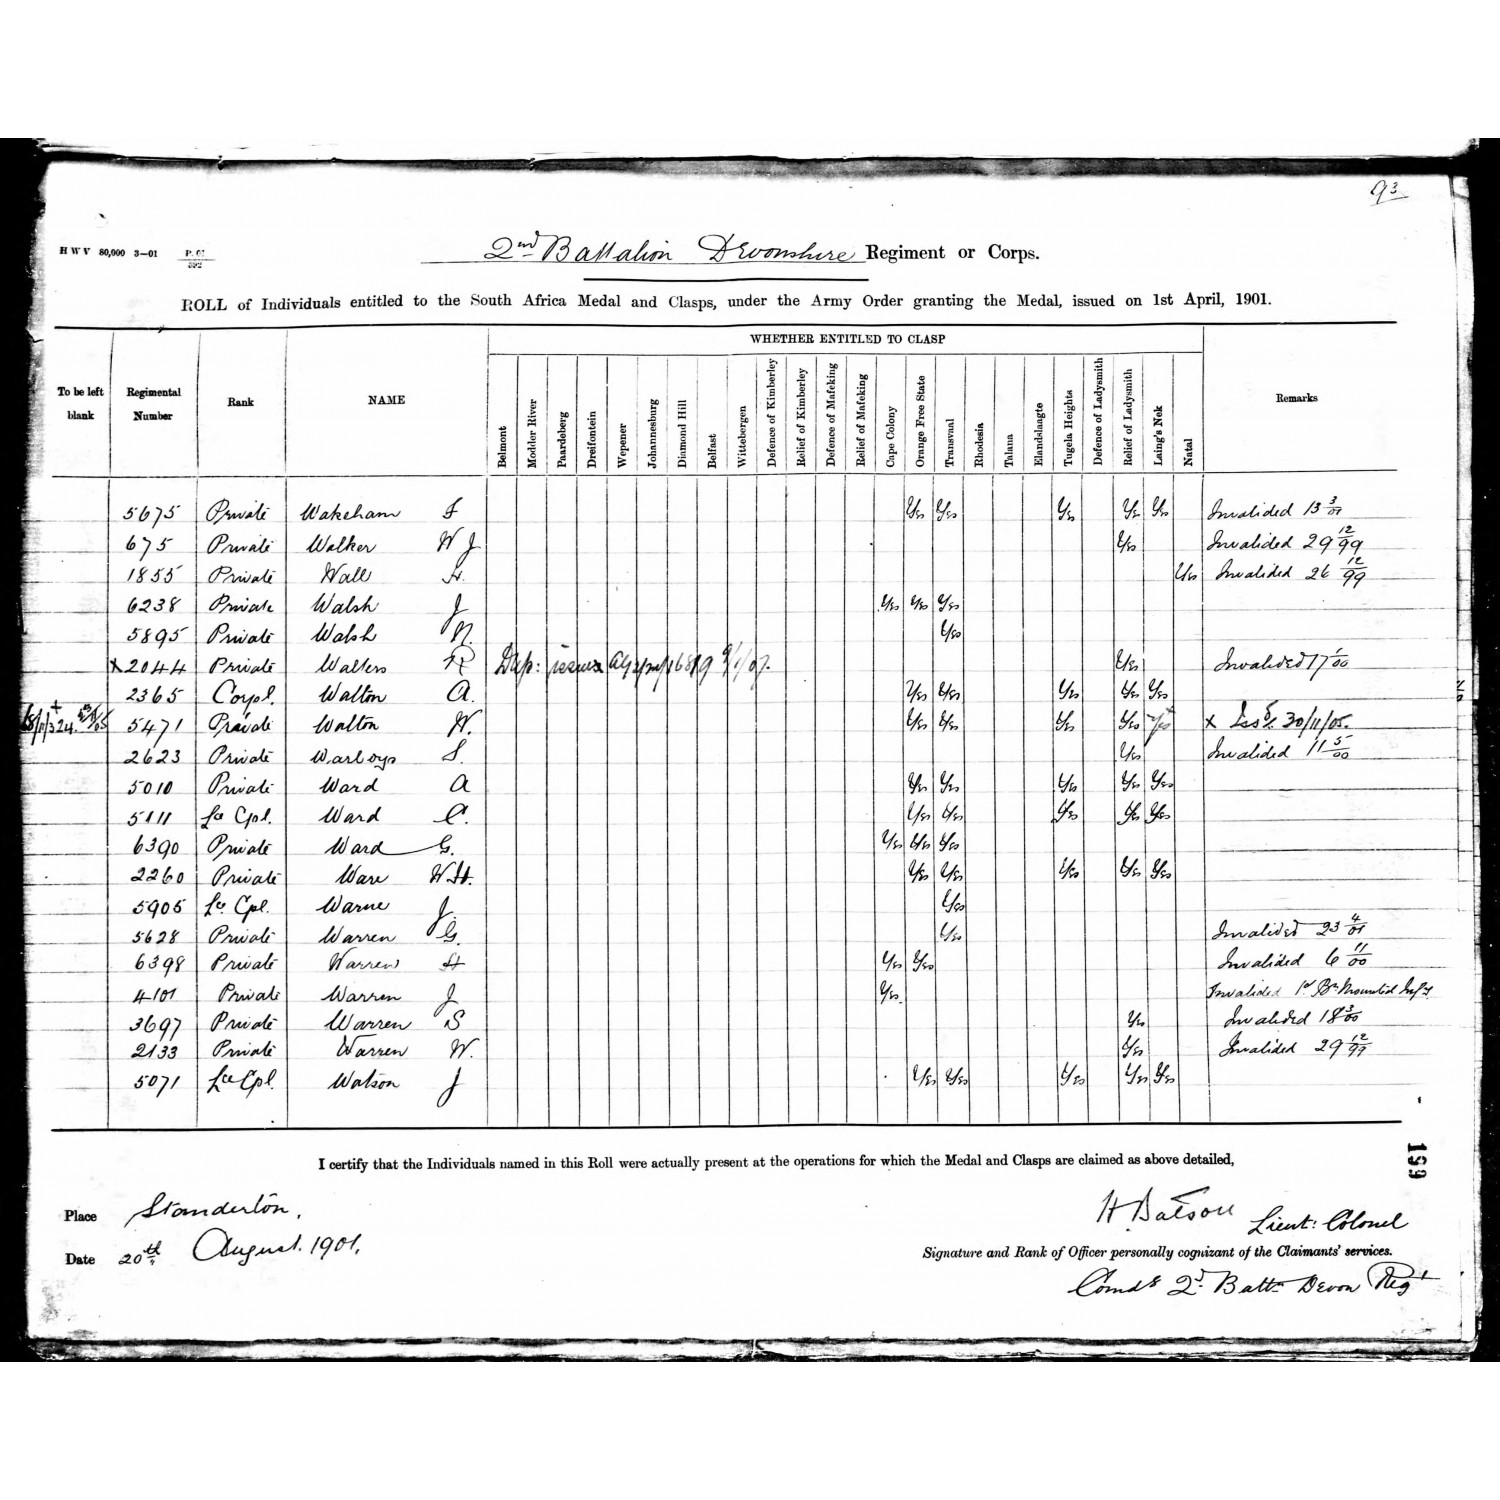 93
H W V 80,000 3—01
2nd Battalion Devonshire Regiment or Corps.
ROLL of Individuals entitled to the South Africa Medal and Clasps, under the Army Order granting the Medal, issued on 1st April, 1901.
WHETHER ENTITLED TO CLASP
To be left blank Regimental Number Rank NAME Belmont Modder River Paardeberg Dreifontein Wepener Johannesburg Diamond Hill Belfast Wittebergen Defence of Kimberley Relief of Kimberley Defence of Mafeking Relief of Mafeking Cape Colony Orange Free State Transvaal Rhodesia Talana Elandslaagte Tugela Heights Defence of Ladysmith Relief of Ladysmith Laing's Nek Natal Remarks
5675 Private Wakeham F Yes Yes Yes Yes Yes Invalided 13 3/01
675 Private Walker W J Yes Invalided 29 12/99
1855 Private Wall H. Yes Invalided 26 12/99
6238 Private Walsh J Yes Yes Yes
5895 Private Walsh N. Yes
x 2044 Private Walters R Dup: issued 9/1/07. Yes Invalided
2365 Corpl. Walton A. Yes Yes Yes Yes Yes
5471 Private Walton W. Yes Yes Yes Yes Yes x Issd. 30/11/05.
2623 Private Warboys S. Yes Invalided 11 5/00
5010 Private Ward A Yes Yes Yes Yes Yes
5111 Lce Cpl. Ward C. Yes Yes Yes Yes Yes
6390 Private Ward G. Yes Yes Yes
2260 Private Ware W H. Yes Yes Yes Yes Yes
5905 Lce Cpl. Warne J. Yes
5628 Private Warren G. Yes Invalided 23 4/01
6398 Private Warren H Yes Yes Invalided 6 11/00
4101 Private Warren J Yes. Invalided 1st Bn Mounted Infy.
3697 Private Warren S Yes Invalided 18 3/00
2133 Private Warren W. Yes Invalided 29 12/99
5071 Lce Cpl. Watson J Yes Yes Yes Yes Yes
199
I certify that the Individuals named in this Roll were actually present at the operations for which the Medal and Clasps are claimed as above detailed,
Place Standerton.
H Batson Lieut: Colonel
Date 20th August. 1901.
Signature and Rank of Officer personally cognizant of the Claimants' services.
Comdg 2d Battn Devon Regt